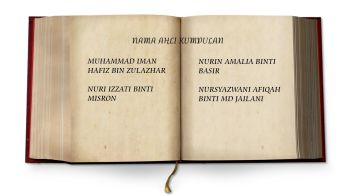 NAMA AHLI KUMPULAN
MUHAMMAD IMAN
HAFIZ BIN ZULAZHAR
NURI IZZATI BINTI
MISRON
NURIN AMALIA BINTI
BASIR
NURSYAZWANI AFIQAH
BINTI MD JAILANI